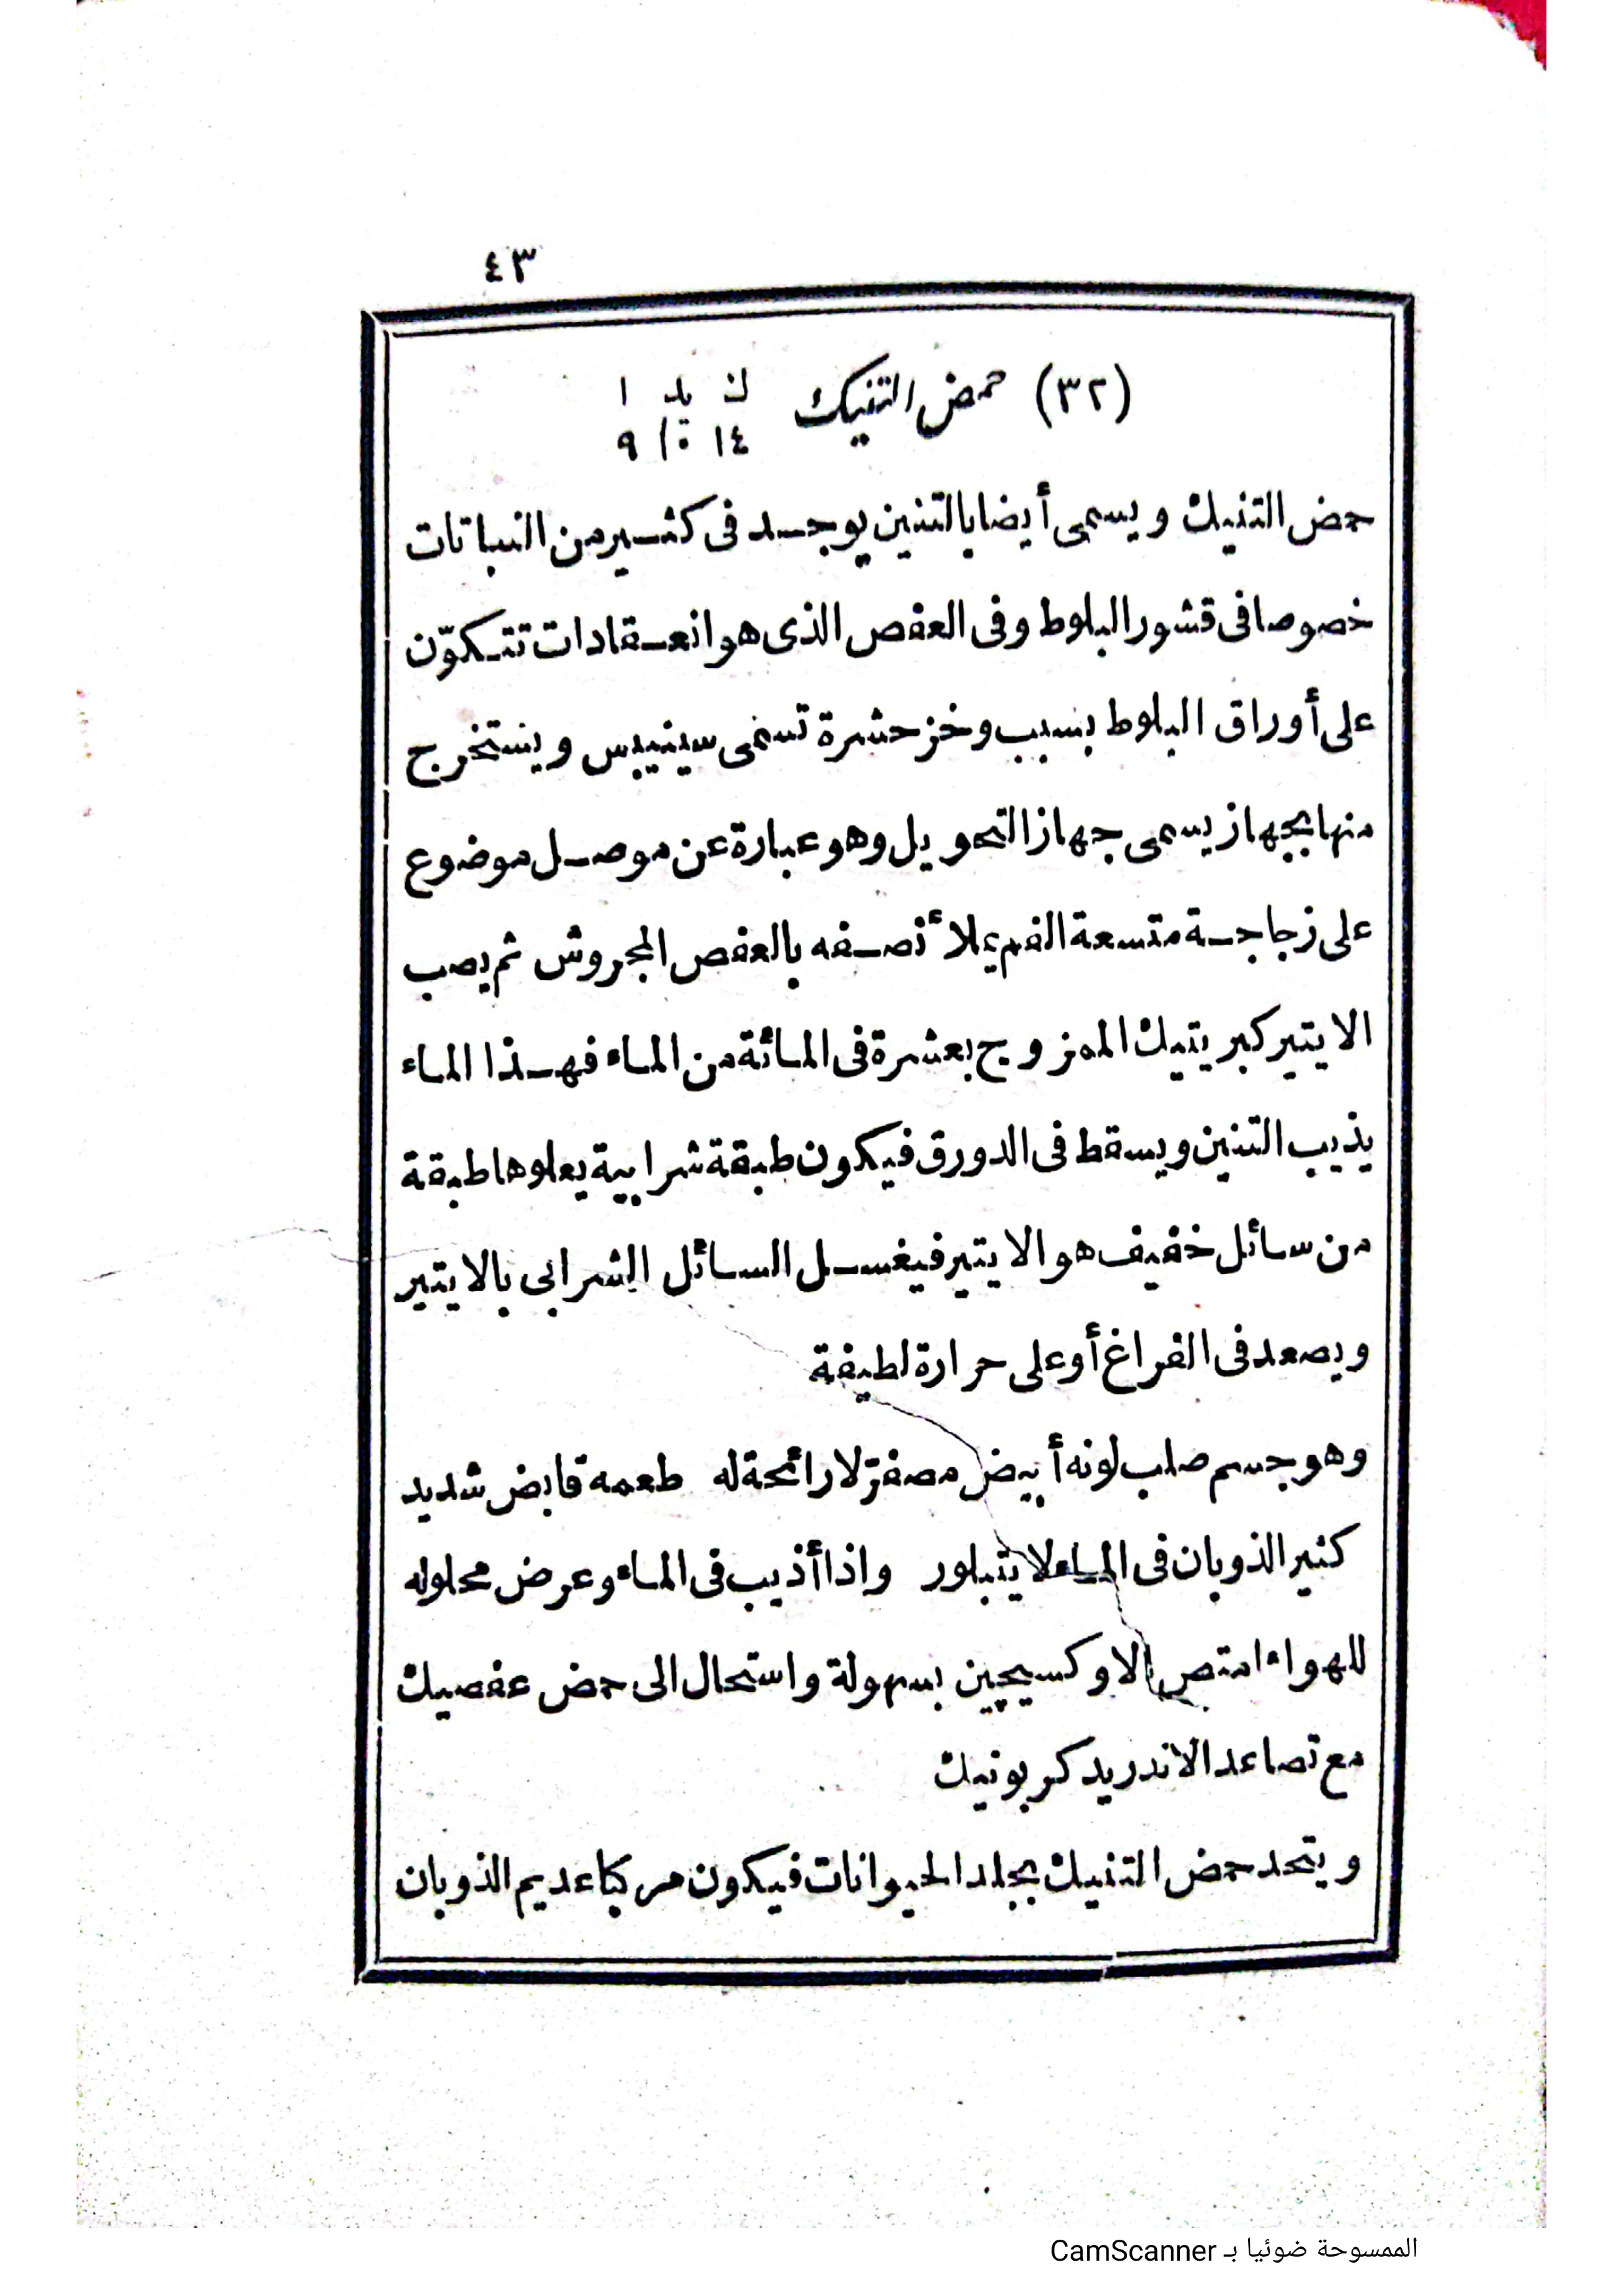 ٤٣
(٣٢) حمض التنيك ك يد ا
١٤ ١٠ ٩
حمض التنيك ويسمى أيضا بالتنين يوجد فى كثير من النباتات
خصوصا فى قشور البلوط وفى العفص الذى هو انعقادات تتكوّن
على أوراق البلوط بسبب وخز حشرة تسمى سينيبس ويستخرج
منها بجهاز يسمى جهاز التحويل وهو عبارة عن موصل موضوع
على زجاجة متسعة الفم يملأ نصفه بالعفص المجروش ثم يصب
الايتير كبريتيك الممزوج بعشرة فى المائة من الماء فهذا الماء
يذيب التنين ويسقط فى الدورق فيكون طبقة شرابية يعلوها طبقة
من سائل خفيف هو الايتير فيغسل السائل الشرابى بالايتير
ويصعد فى الفراغ أو على حرارة لطيفة
وهو جسم صلب لونه أبيض مصفرّ لا رائحة له طعمه قابض شديد
كثير الذوبان فى الماء لا يتبلور واذا أذيب فى الماء وعرض محلوله
للهواء امتص الاوكسيچين بسهولة واستحال الى حمض عفصيك
مع تصاعد الاندريد كربونيك
ويتحد حمض التنيك بجلد الحيوانات فيكون مركبا عديم الذوبان
الممسوحة ضوئيا بـ CamScanner